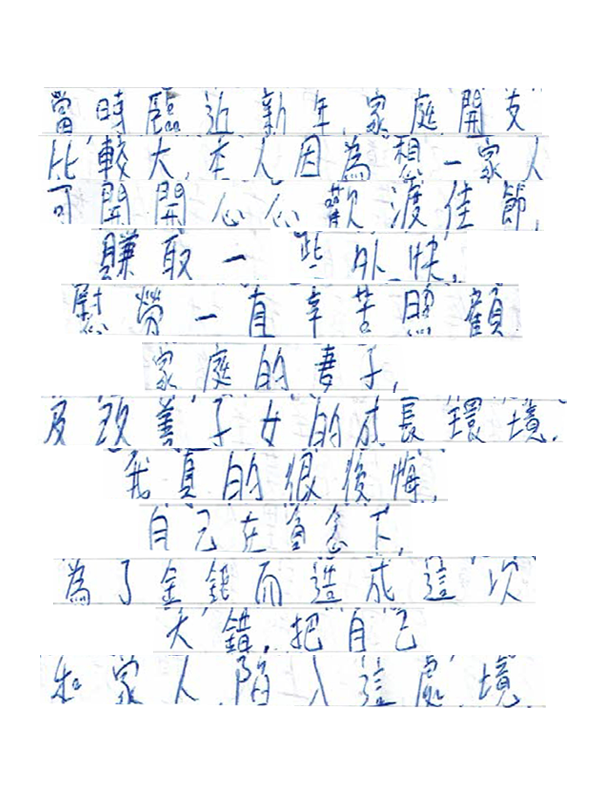 當時臨近新年,家庭開支
比較大,本人因為想一家人
可開開心心歡渡佳節,
賺取一些外快,
慰勞一直辛苦照顧
家庭的妻子,
及改善子女的成長環境,
我真的很後悔,
自己在貪念下,
為了金錢而造成這次
大錯,把自己
和家人陷入這處境